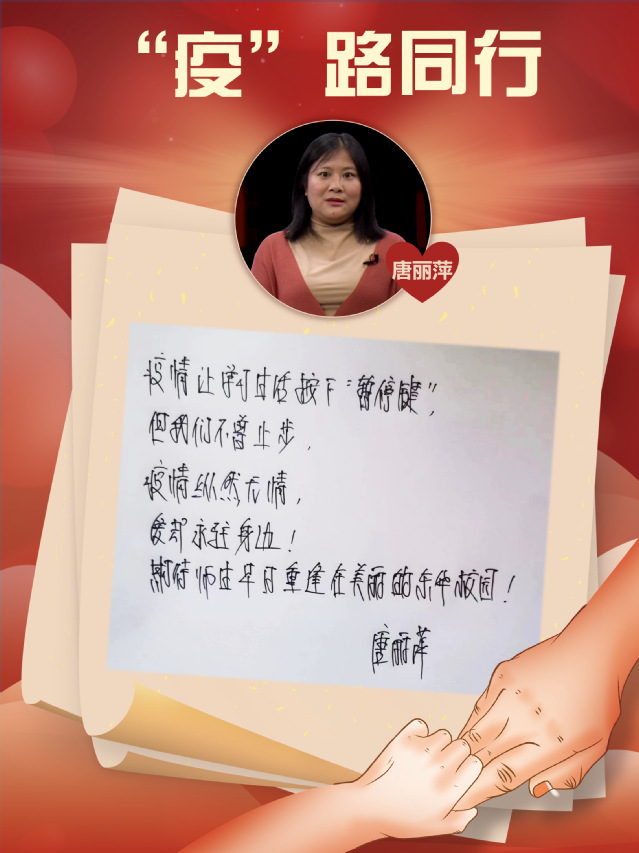 “疫”路同行
唐丽萍
疫情让学习生活按下“暂停键”，
但我们不曾止步，
疫情纵然无情，
爱却永驻身边！
期待师生早日重逢在美丽的东中校园！
唐丽萍